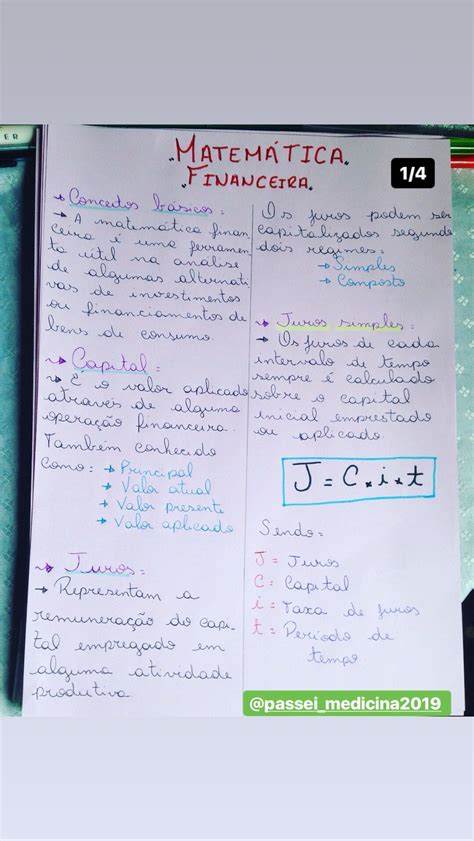 MATEMÁTICA
FINANCEIRA
1/4
Conceitos básicos:
→ A matemática finan
ceira é uma ferramen
ta útil na análise
de algumas alternati
vas de investimentos
ou financiamentos de
bens de consumo.
Capital:
→ É o valor aplicado
através de alguma
operação financeira.
Também conhecido
como: → Principal
→ Valor atual
→ Valor presente
→ Valor aplicado
Juros:
→ Representam a
remuneração do capi
tal empregado em
alguma atividade
produtiva
Os juros podem ser
capitalizados segundo
dois regimes:
→ Simples
→ Composto
Juros simples:
→ Os juros de cada
intervalo de tempo
sempre é calculado
sobre o capital
inicial emprestado
ou aplicado.
J = C . i . t
Sendo:
J = Juros
C = Capital
i = Taxa de juros
t = Período de
tempo
@passei_medicina2019